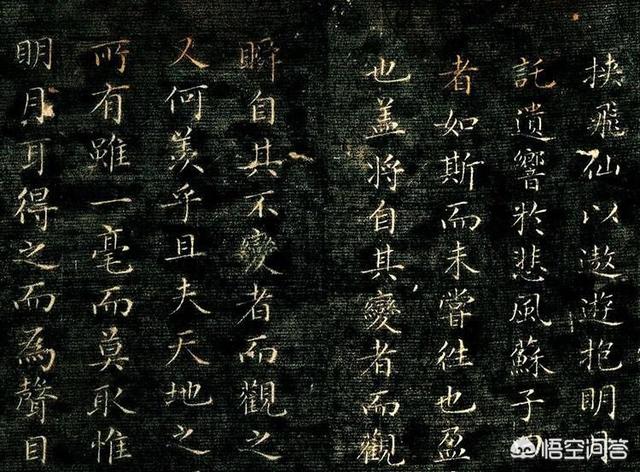 挟飛仙以遨遊抱明月
託遺響於悲風蘇子曰
者如斯而未嘗往也盈
也盖將自其變者而觀
瞬自其不變者而觀之
又何羨乎且夫天地之
所有雖一毫而莫取惟
明月耳得之而為聲目
悟空问答